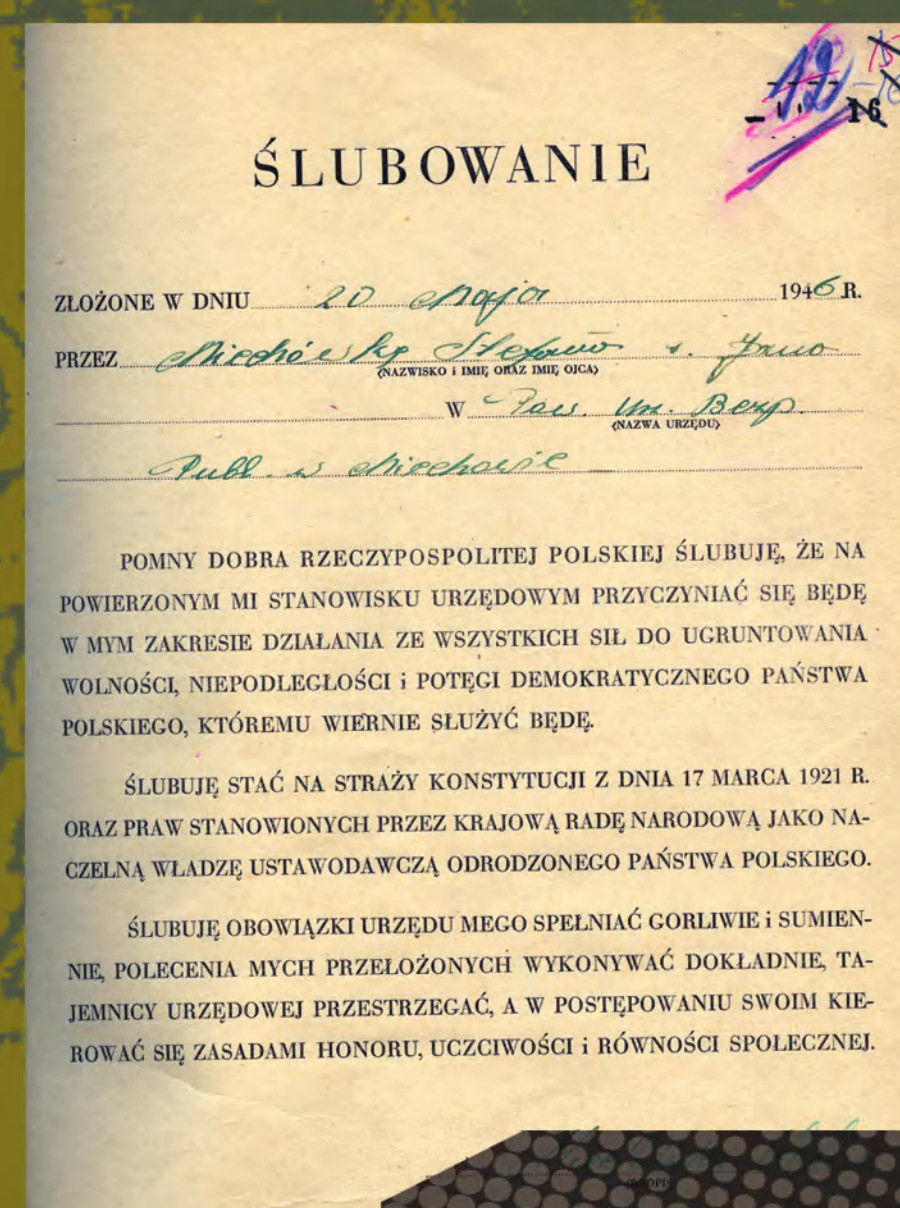 12 15
16
ŚLUBOWANIE
ZŁOŻONE W DNIU 20 Maja 1946 R.
PRZEZ Stefana s. Jana
(NAZWISKO i IMIĘ ORAZ IMIĘ OJCA)
W Pow. Urz. Bezp.
(NAZWA URZĘDU)
Publ. w Miechowie
POMNY DOBRA RZECZYPOSPOLITEJ POLSKIEJ ŚLUBUJĘ, ŻE NA
POWIERZONYM MI STANOWISKU URZĘDOWYM PRZYCZYNIAĆ SIĘ BĘDĘ
W MYM ZAKRESIE DZIAŁANIA ZE WSZYSTKICH SIŁ DO UGRUNTOWANIA
WOLNOŚCI, NIEPODLEGŁOŚCI i POTĘGI DEMOKRATYCZNEGO PAŃSTWA
POLSKIEGO, KTÓREMU WIERNIE SŁUŻYĆ BĘDĘ.
ŚLUBUJĘ STAĆ NA STRAŻY KONSTYTUCJI Z DNIA 17 MARCA 1921 R.
ORAZ PRAW STANOWIONYCH PRZEZ KRAJOWĄ RADĘ NARODOWĄ JAKO NA-
CZELNĄ WŁADZĘ USTAWODAWCZĄ ODRODZONEGO PAŃSTWA POLSKIEGO.
ŚLUBUJĘ OBOWIĄZKI URZĘDU MEGO SPEŁNIAĆ GORLIWIE i SUMIEN-
NIE, POLECENIA MYCH PRZEŁOŻONYCH WYKONYWAĆ DOKŁADNIE, TA-
JEMNICY URZĘDOWEJ PRZESTRZEGAĆ, A W POSTĘPOWANIU SWOIM KIE-
ROWAĆ SIĘ ZASADAMI HONORU, UCZCIWOŚCI i RÓWNOŚCI SPOŁECZNEJ.